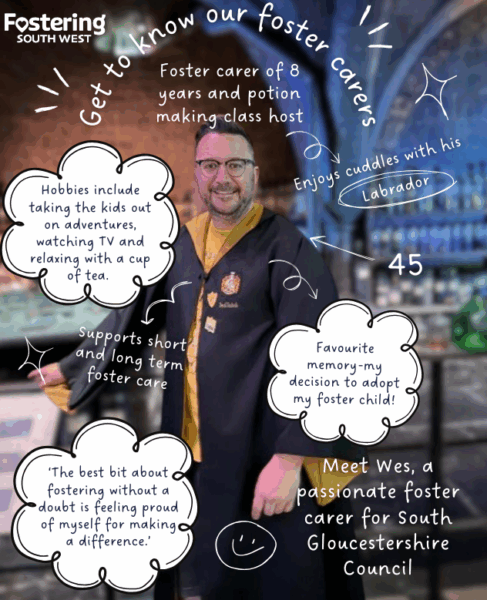 Fostering
SOUTH WEST
Get to know our foster carers
Foster carer of 8
years and potion
making class host
Enjoys cuddles with his
Labrador
Hobbies include
taking the kids out
on adventures,
watching TV and
relaxing with a cup
of tea.
45
Supports short
and long term
foster care
Favourite
memory-my
decision to adopt
my foster child!
'The best bit about
fostering without a
doubt is feeling proud
of myself for making
a difference.'
Meet Wes, a
passionate foster
carer for South
Gloucestershire
Council